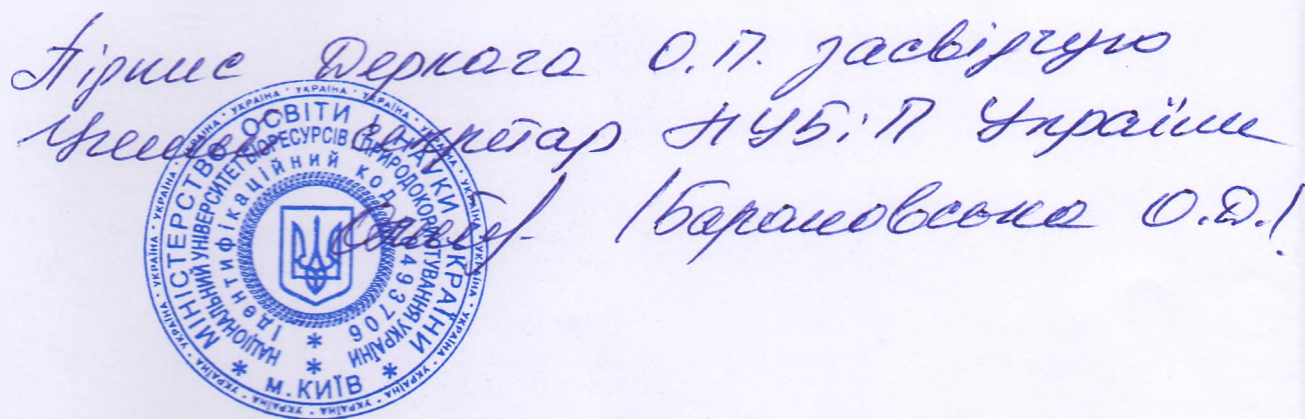 Підпис Деркача О.П. засвідчую
Учений секретар НУБіП України
/Барановська О.Д./
УКРАЇНА · УКРАЇНА · УКРАЇНА · УКРАЇНА
МІНІСТЕРСТВО ОСВІТИ І НАУКИ УКРАЇНИ
НАЦІОНАЛЬНИЙ УНІВЕРСИТЕТ БІОРЕСУРСІВ І ПРИРОДОКОРИСТУВАННЯ УКРАЇНИ
Ідентифікаційний код 00493706
* М.КИЇВ *